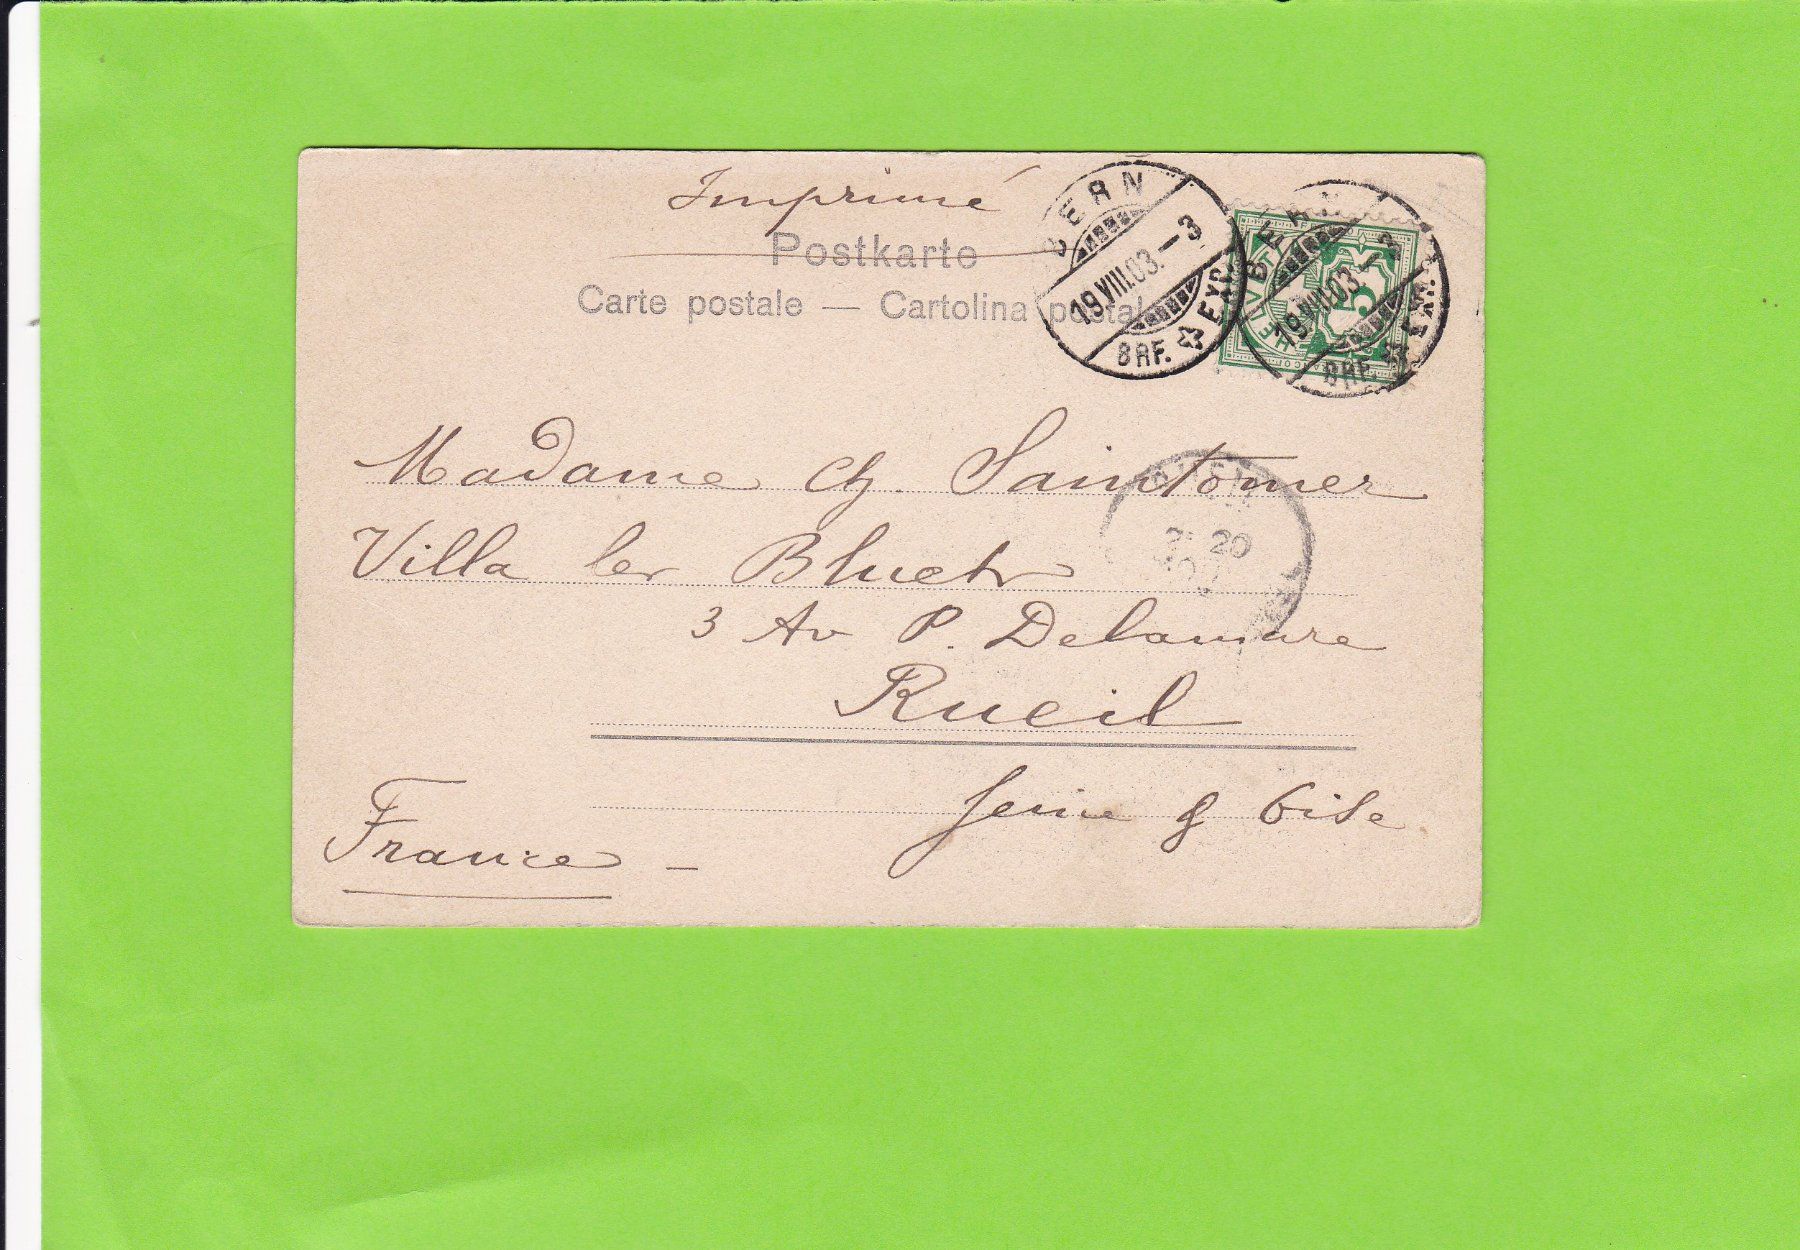 Imprimé
Postkarte
Carte postale — Cartolina postale
BERN
19.VIII.03.–3
BRF. EXP.
HELVETIA
5
FRANCO
BERN
19.VIII.03.–3
BRF. EXP.
Madame Ch. Saintomer
Villa les Bluets
3 Av P. Delamare
Rueil
Seine & Oise
France –
20